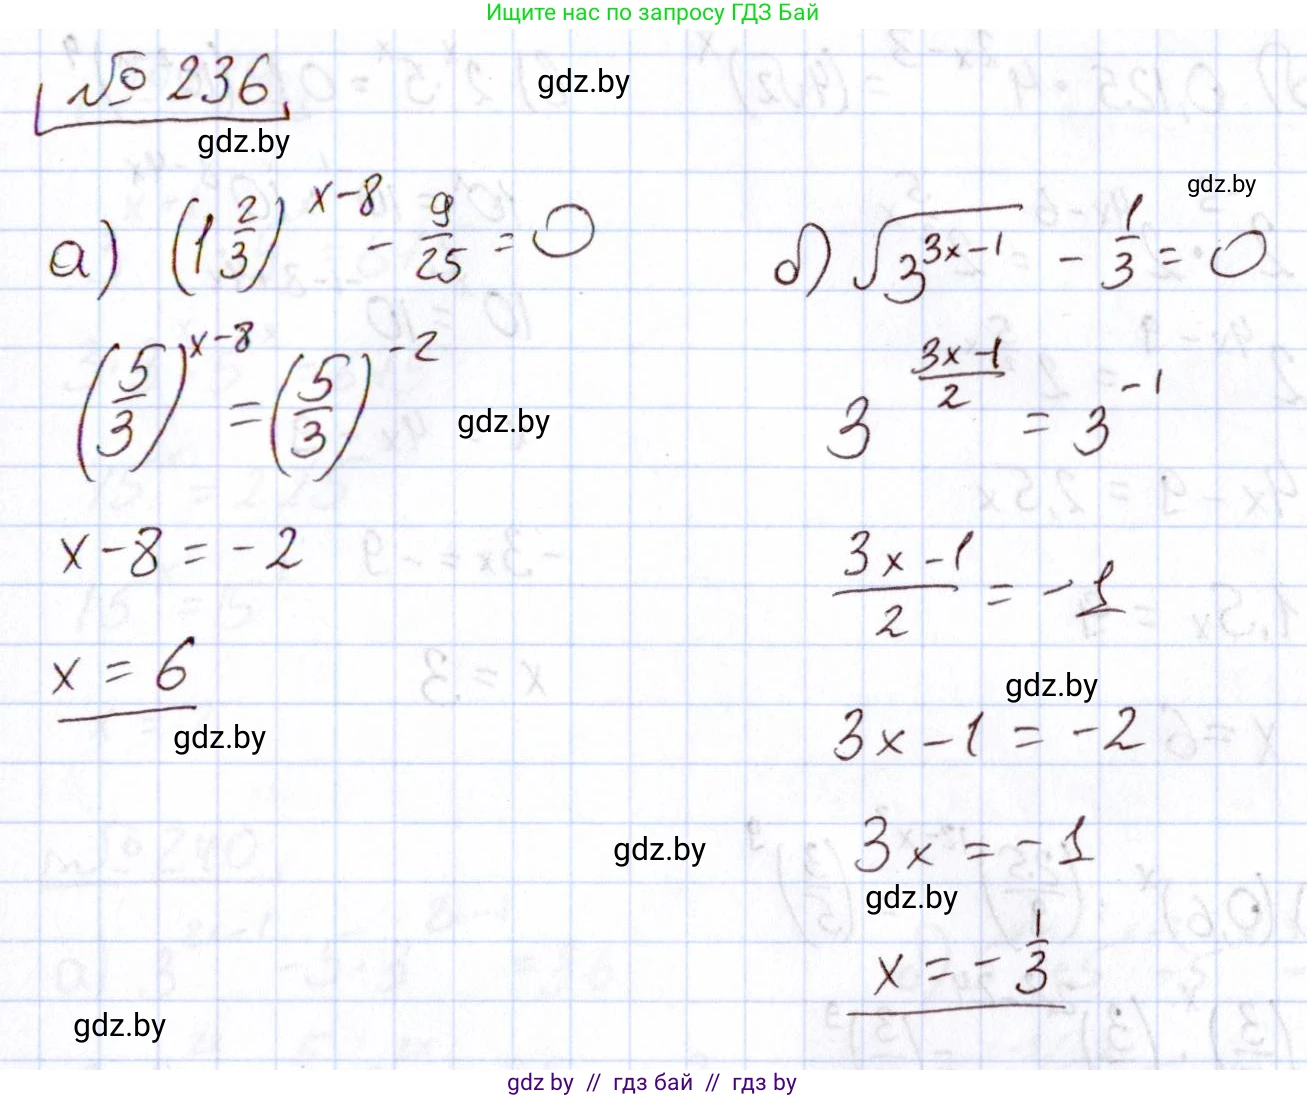 Ищите нас по запросу ГДЗ Бай
№ 236
gdz.by
gdz.by
gdz.by
а) (1 2/3)^(x-8) - 9/25 = 0
(5/3)^(x-8) = (5/3)^(-2)
gdz.by
x - 8 = -2
x = 6
gdz.by
б) √(3^(3x-1)) - 1/3 = 0
3^((3x-1)/2) = 3^(-1)
(3x-1)/2 = -1
gdz.by
3x - 1 = -2
gdz.by
3x = -1
gdz.by
x = - 1/3
gdz.by
gdz by // гдз бай // гдз by